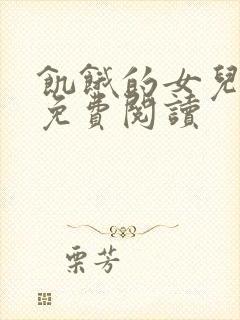 飢餓的女兒
免費閱讀
栗芳